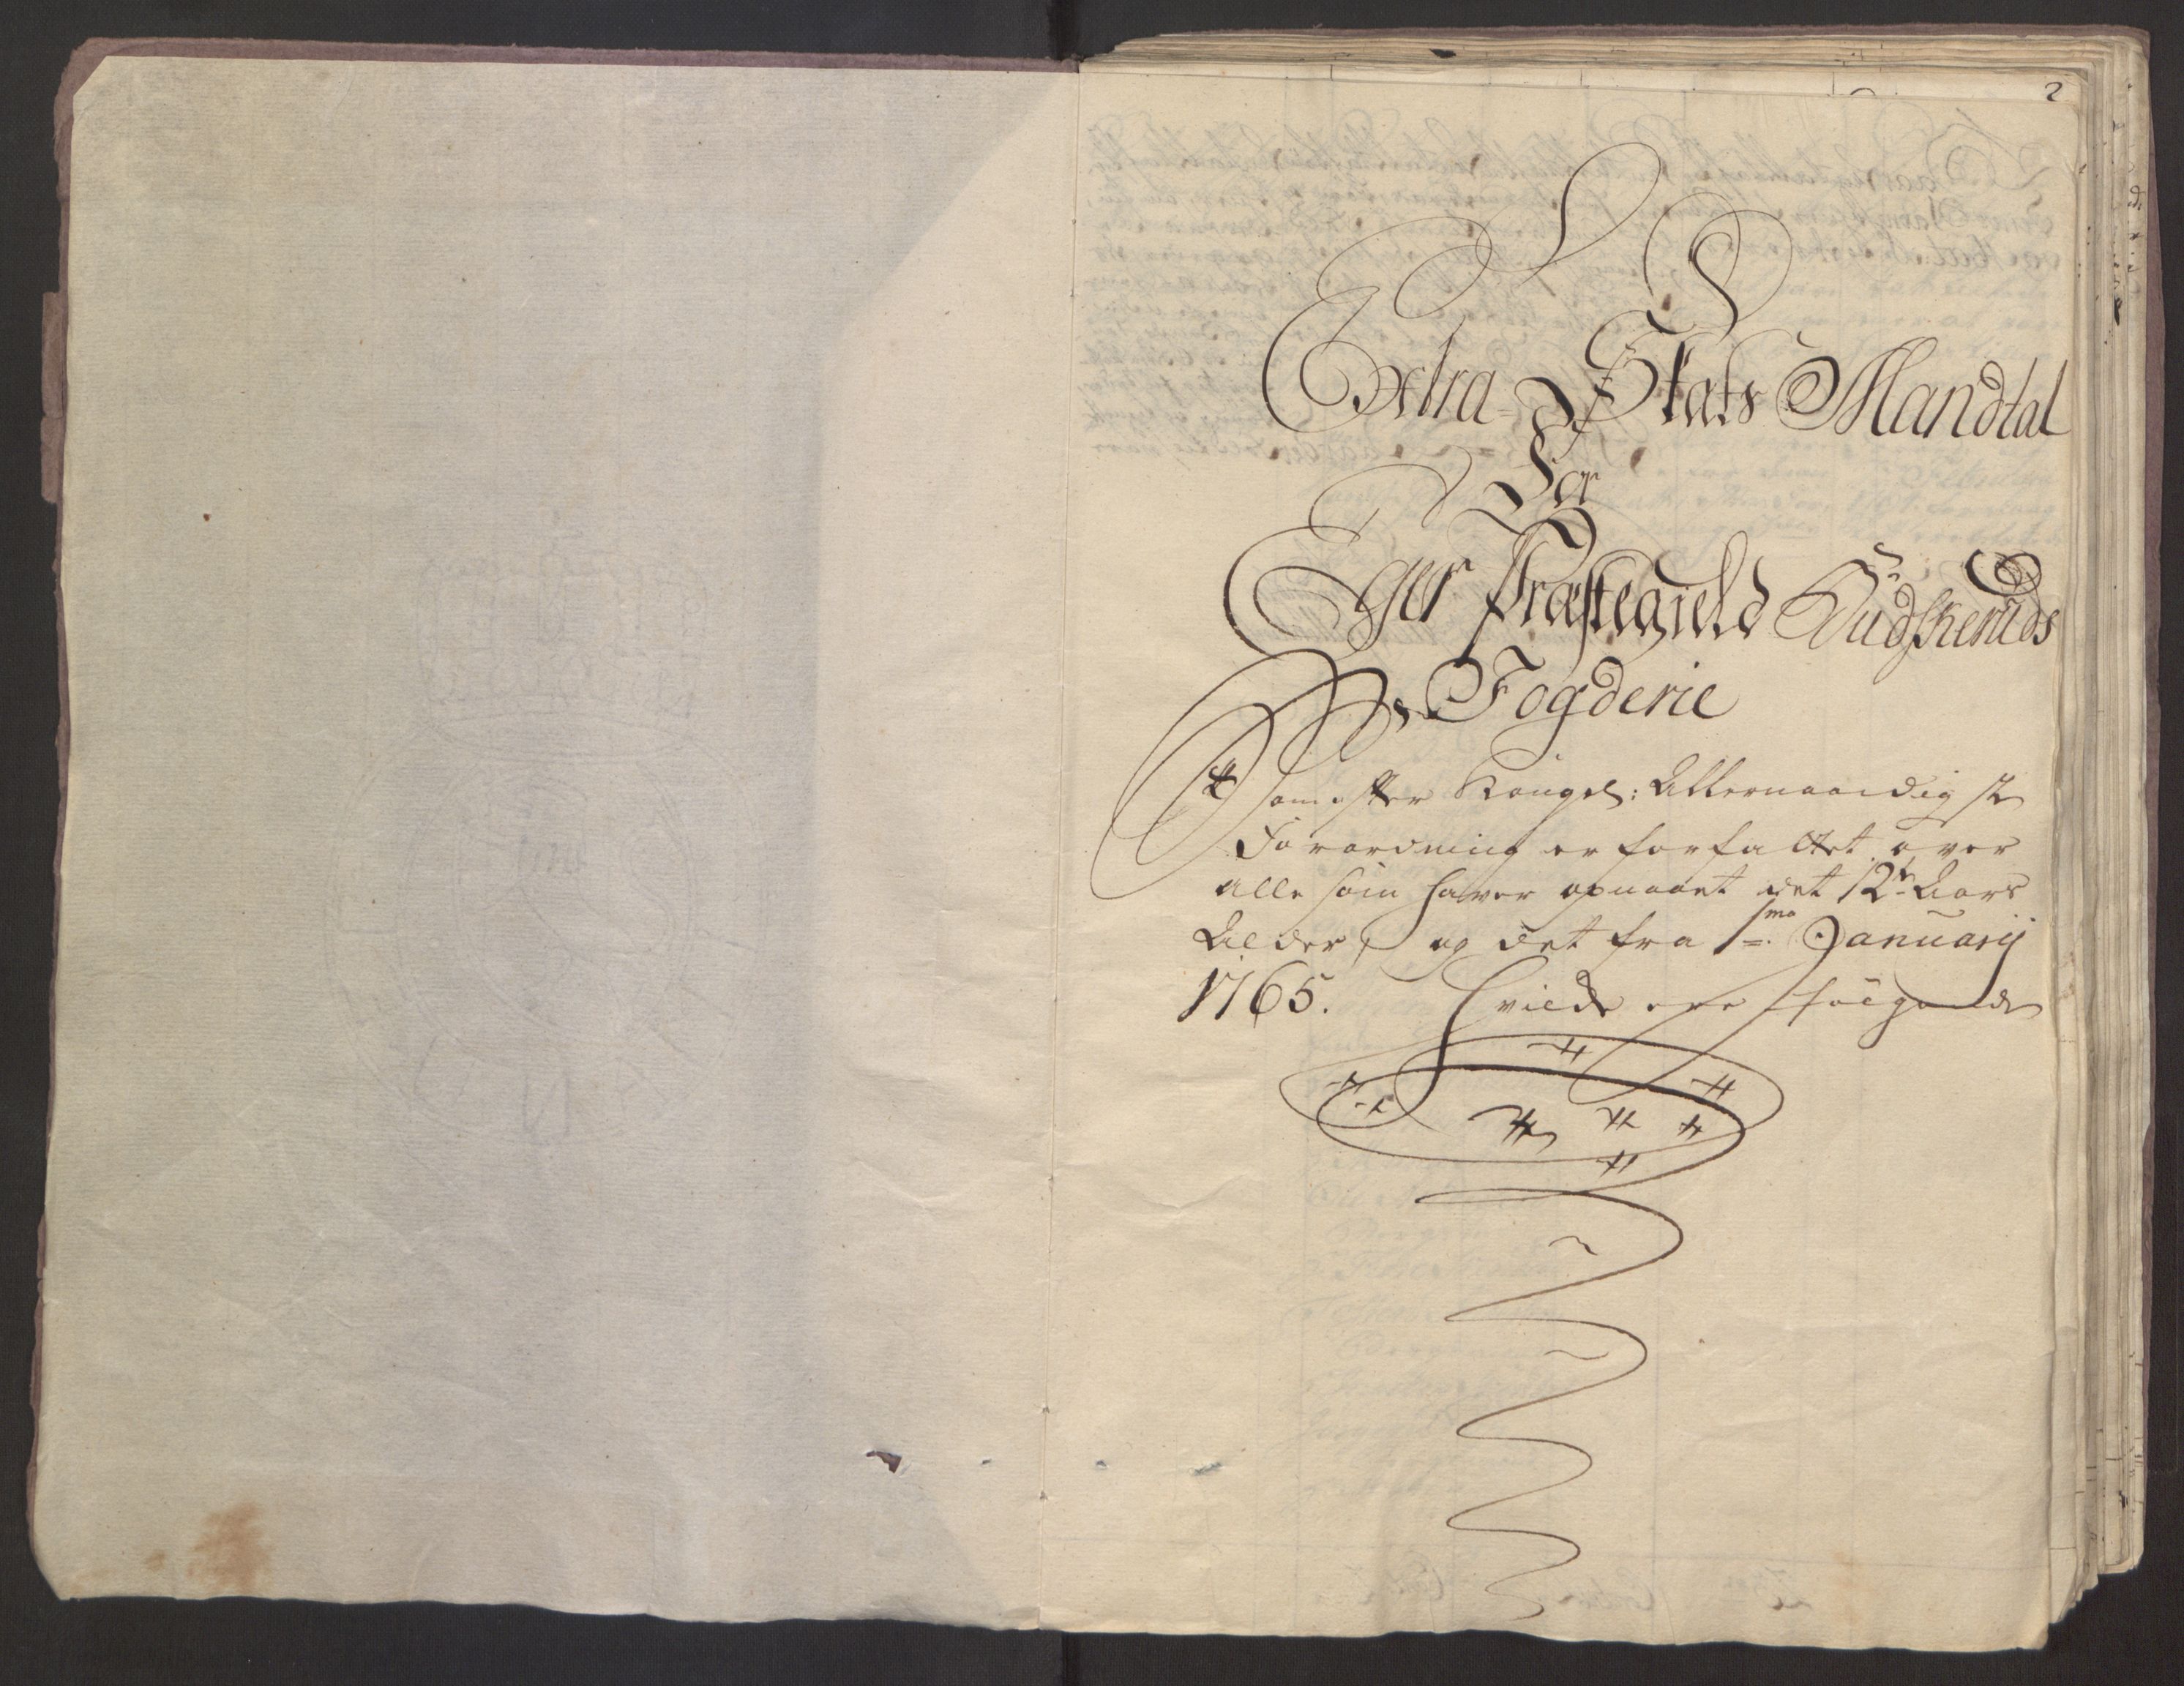 2
Extra-Skats Mandtal
For
Eger Præstegield Budskeruds
Fogderie
som efter Kongel: Allernaadigste
Forordning er forfattet over
alle som haver opnaaet det 12te Aars
Alder, og det fra 1mo Januarij
1765. Hvilcke ere følgende